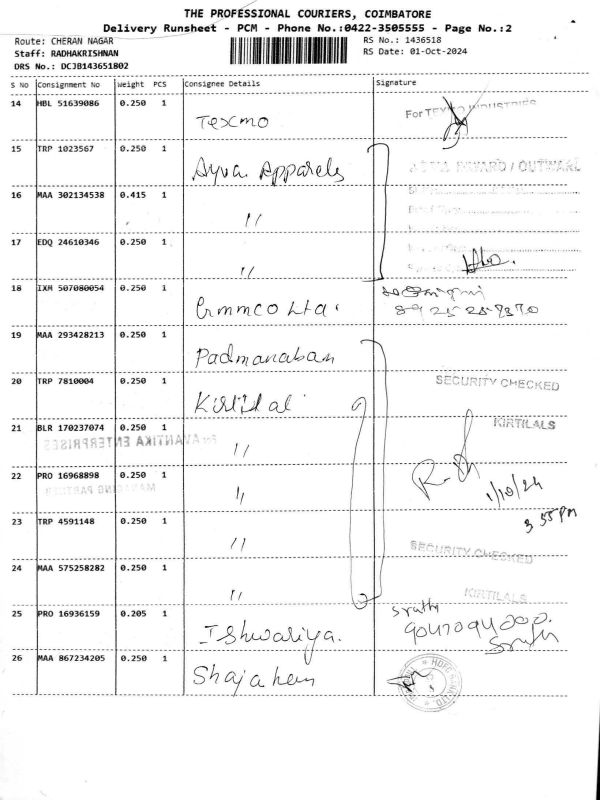 THE PROFESSIONAL COURIERS, COIMBATORE
Delivery Runsheet - PCM - Phone No.:0422-3505555 - Page No.:2
Route: CHERAN NAGAR
Staff: RADHAKRISHNAN
DRS No.: DCJB143651802
RS No.: 1436518
RS Date: 01-Oct-2024
S No Consignment No Weight PCS Consignee Details Signature
14 HBL 51639086 0.250 1 Texmo For TEXMO INDUSTRIES
15 TRP 1023567 0.250 1 Ayva Apparels
16 MAA 302134538 0.415 1 "
17 EDQ 24610346 0.250 1 "
18 IXM 507080054 0.250 1 Gmmco Ltd.
19 MAA 293428213 0.250 1 Padmanaban
20 TRP 7810004 0.250 1 Kirtilal SECURITY CHECKED
21 BLR 170237074 0.250 1 " KIRTILALS
For AVANTIKA ENTERPRISES
22 PRO 16968898 0.250 1 " 1/10/24
MANAGING PARTNER
23 TRP 4591148 0.250 1 " 3 55 PM
SECURITY CHECKED
24 MAA 575258282 0.250 1 " KIRTILALS
25 PRO 16936159 0.205 1 Ishwariya.
26 MAA 867234205 0.250 1 Shajahan